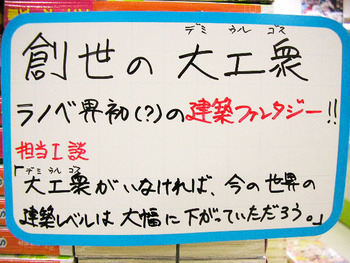 デミ ウル ゴス
創世の 大工衆
ラノベ界初(?)の建築ファンタジー!!
担当I談
デミ ウル ゴス
「大工衆がいなければ、今の世界の
建築レベルは 大幅に下がっていただろう。」